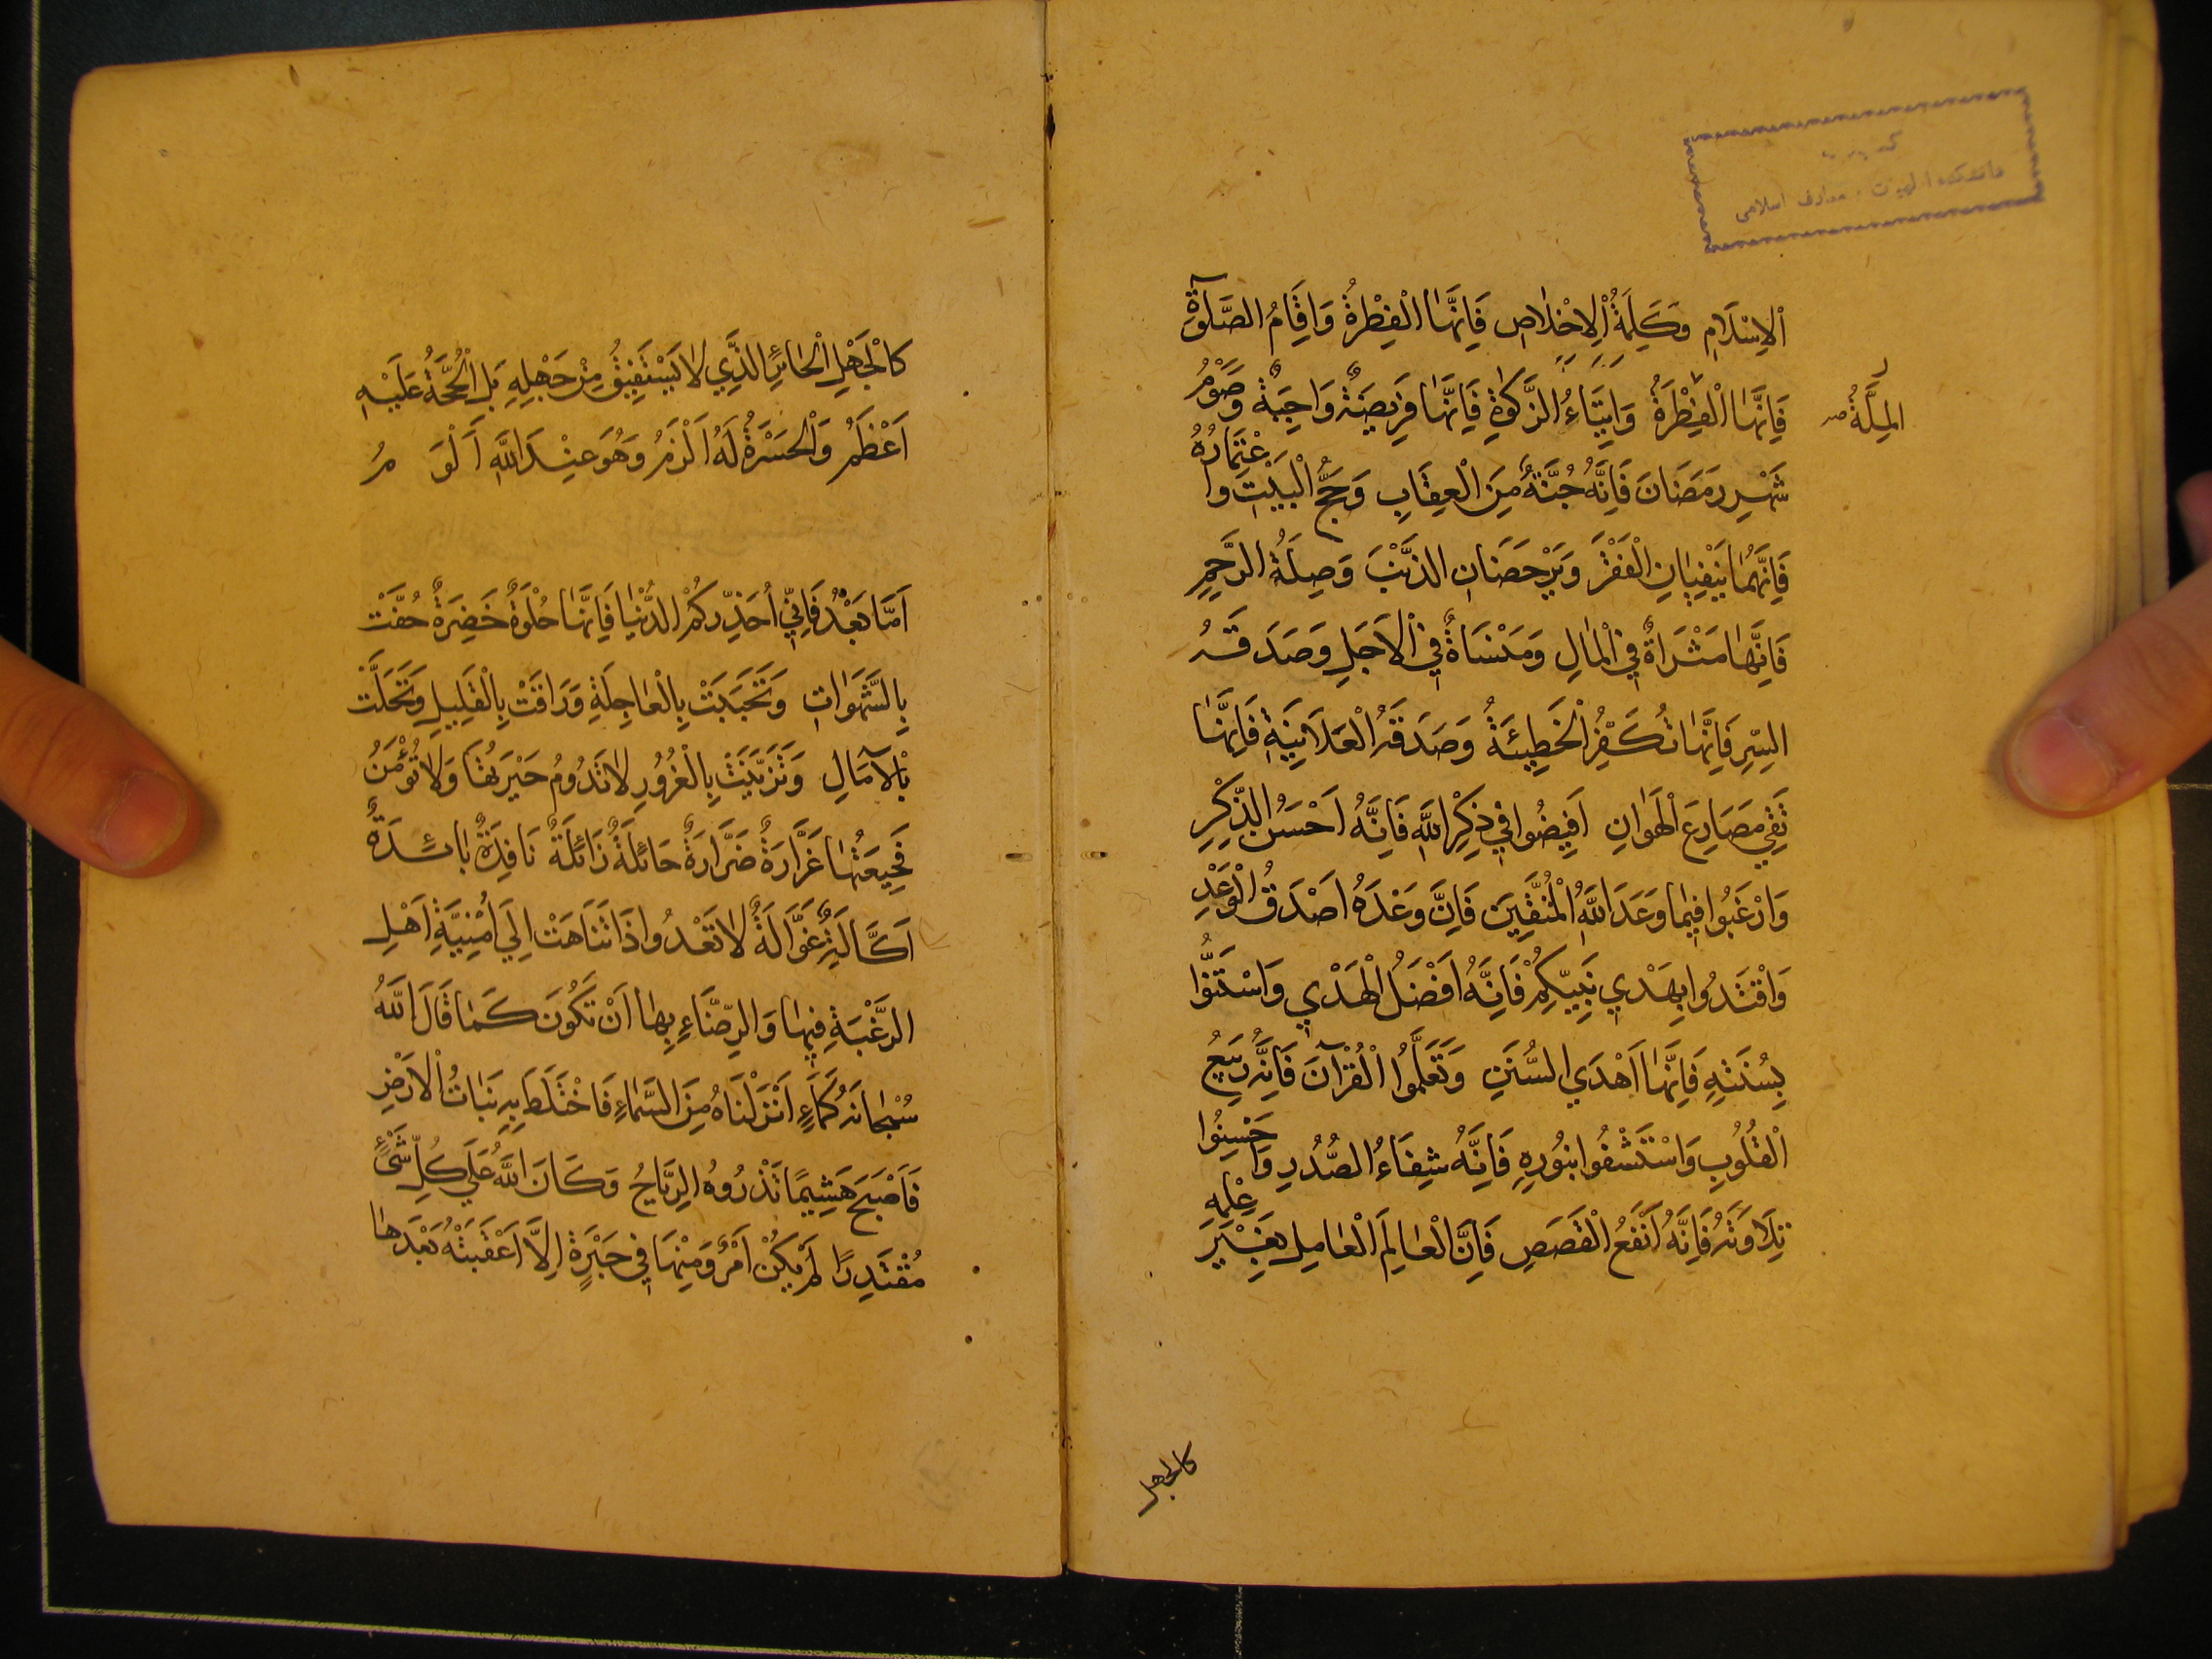 دانشكده الهيات و معارف اسلامى
اْلاِسْلَامِ وَكَلِمَةُ اْلاِخْلَاصِ فَاِنَّهَا الْفِطْرَةُ وَاِقَامُ الصَّلٰوةِ
فَاِنَّهَا الْفِطْرَةُ وَاِيتَاءُ الزَّكٰوةِ فَاِنَّهَا فَرِيضَةٌ وَاجِبَةٌ وَصَوْمُ
الْمِلَّةُ
شَهْرِ رَمَضَانَ فَاِنَّهُ جُنَّةٌ مِنَ الْعِقَابِ وَحَجُّ الْبَيْتِ وَاعْتِمَارُهُ
فَاِنَّهُمَا يَنْفِيَانِ الْفَقْرَ وَيَرْحَضَانِ الذَّنْبَ وَصِلَةُ الرَّحِمِ
فَاِنَّهَا مَثْرَاةٌ فِي الْمَالِ وَمَنْسَاةٌ فِي اْلاَجَلِ وَصَدَقَةُ
السِّرِ فَاِنَّهَا تُكَفِّرُ الْخَطِيئَةَ وَصَدَقَةُ الْعَلَانِيَةِ فَاِنَّهَا
تَقِي مَصَارِعَ الْهَوَانِ اَفِيضُوا فِي ذِكْرِ اللّٰهِ فَاِنَّهُ اَحْسَنُ الذِّكْرِ
وَارْغَبُوا فِيمَا وَعَدَ اللّٰهُ الْمُتَّقِينَ فَاِنَّ وَعْدَهُ اَصْدَقُ الْوَعْدِ
وَاقْتَدُوا بِهَدْيِ نَبِيِّكُمْ فَاِنَّهُ اَفْضَلُ الْهَدْيِ وَاسْتَنُّوا
بِسُنَّتِهِ فَاِنَّهَا اَهْدَي السُّنَنِ وَتَعَلَّمُوا الْقُرْآنَ فَاِنَّهُ رَبِيعُ
الْقُلُوبِ وَاسْتَشْفُوا بِنُورِهِ فَاِنَّهُ شِفَاءُ الصُّدُرِ وَاَحْسِنُوا
تِلَاوَتَهُ فَاِنَّهُ اَنْفَعُ الْقَصَصِ فَاِنَّ الْعَالِمَ الْعَامِلَ بِغَيْرِ عِلْمِهِ
كالجاهل
كَالْجَهْلِ الْحَائِرِ الَّذِي لَا يَسْتَفِيقُ مِنْ جَهْلِهِ بَلِ الْحُجَّةُ عَلَيْهِ
اَعْظَمُ وَالْحَسْرَةُ لَهُ اَلْزَمُ وَهُوَ عِنْدَ اللّٰهِ اَلْوَمُ
اَمَّا بَعْدُ فَاِنِّي اُحَذِّرُكُمُ الدُّنْيَا فَاِنَّهَا حُلْوَةٌ خَضِرَةٌ حُفَّتْ
بِالشَّهَوَاتِ وَتَحَبَّبَتْ بِالْعَاجِلَةِ وَرَاقَتْ بِالْقَلِيلِ وَتَحَلَّتْ
بِاْلآمَالِ وَتَزَيَّنَتْ بِالْغُرُورِ لَا تَدُومُ حَبْرَتُهَا وَلَا تُؤْمَنُ
فَجِيعَتُهَا غَرَّارَةٌ ضَرَّارَةٌ حَائِلَةٌ زَائِلَةٌ نَافِدَةٌ بَائِدَةٌ
اَكَّالَةٌ غَوَّالَةٌ لَا تَعْدُو اِذَا تَنَاهَتْ اِلَي اُمْنِيَّةِ اَهْلِ
الرَّغْبَةِ فِيهَا وَالرِّضَاءِ بِهَا اَنْ تَكُونَ كَمَا قَالَ اللّٰهُ
سُبْحَانَهُ كَمَاءٍ اَنْزَلْنَاهُ مِنَ السَّمَاءِ فَاخْتَلَطَ بِهِ نَبَاتُ اْلاَرْضِ
فَاَصْبَحَ هَشِيمًا تَذْرُوهُ الرِّيَاحُ وَكَانَ اللّٰهُ عَلَي كُلِّ شَيْءٍ
مُقْتَدِرًا لَمْ يَكُنْ امْرُؤٌ مِنْهَا فِي حَبْرَةٍ اِلَّا اَعْقَبَتْهُ بَعْدَهَا